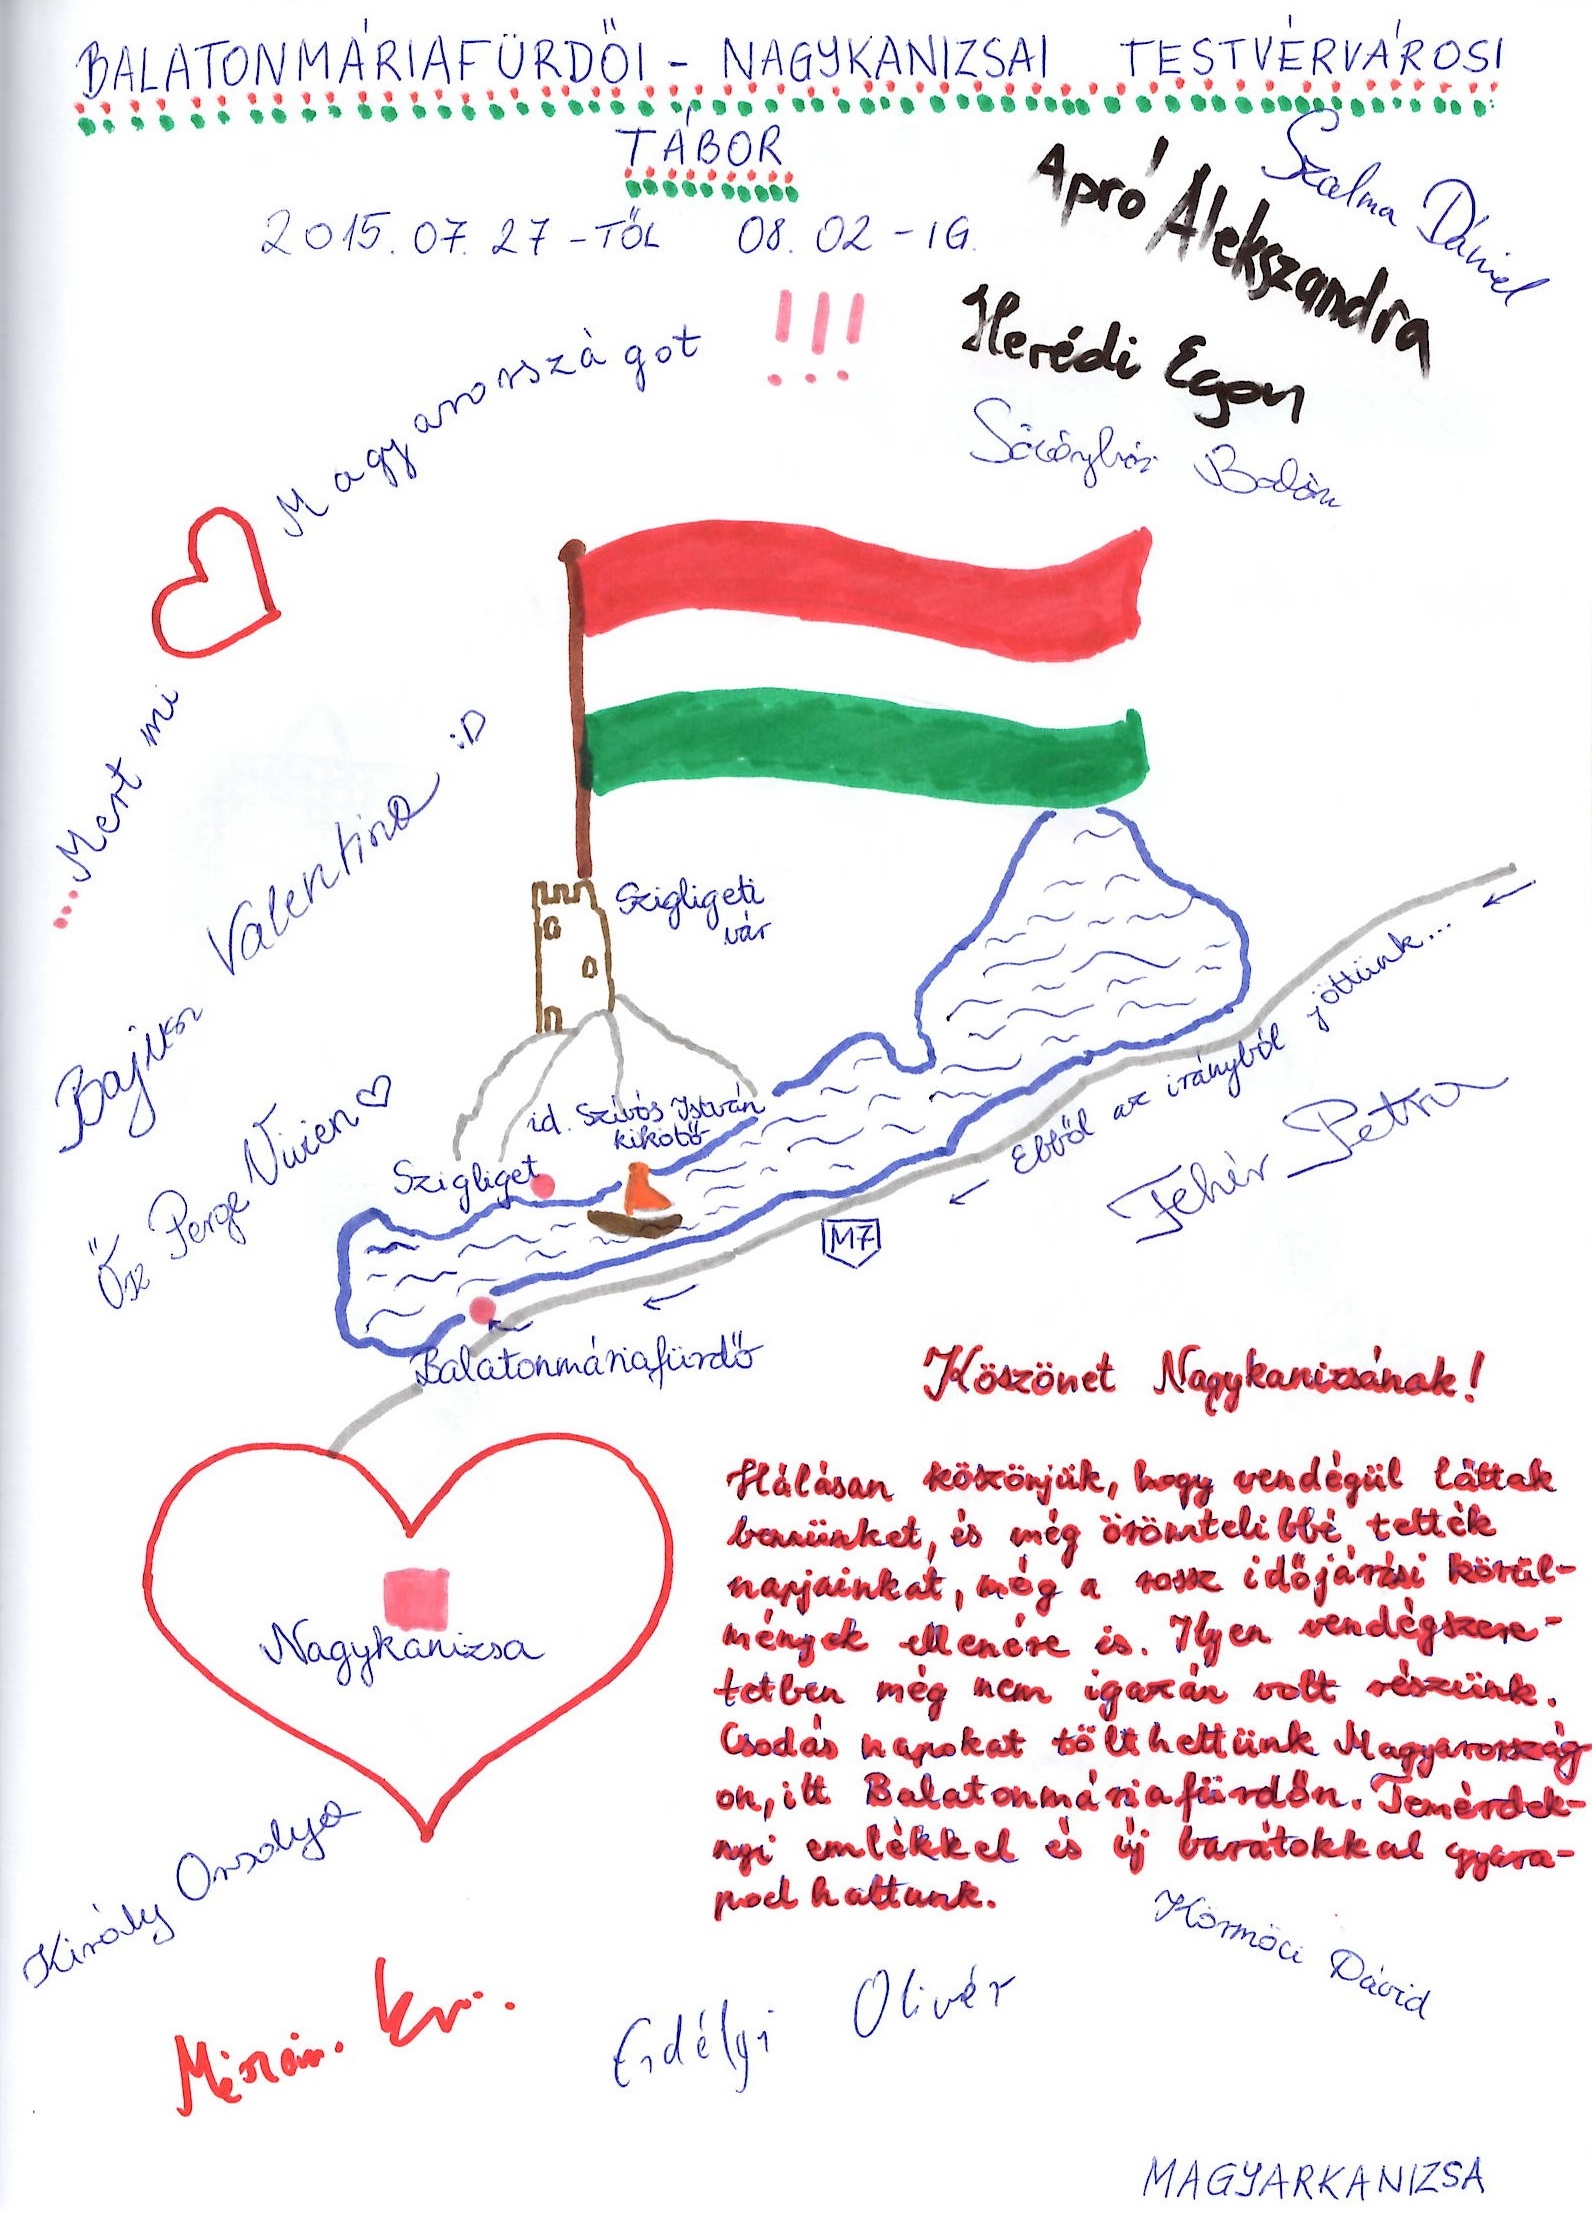 BALATONMÁRIAFÜRDŐI - NAGYKANIZSAI TESTVÉRVÁROSI
TÁBOR
2015.07.27-TŐL 08.02-IG.
Szalma Dániel
Apró Alekszandra
Herédi Egon
...Mert mi
Magyarországot !!!
Valentina :D
Ősz Perge Vivien
Szigligeti
vár
id. Szívós István
kikötő
Szigliget
Ebből az irányból jöttünk...
Fehér Petra
M7
Balatonmáriafürdő
Nagykanizsa
Köszönet Nagykanizsának!
Hálásan köszönjük, hogy vendégül láttak
bennünket, és még örömtelibbé tették
napjainkat, még a rossz időjárási körül-
mények ellenére is. Ilyen vendégszere-
tetben még nem igazán volt részünk.
Csodás napokat tölthettünk Magyarország
on, itt Balatonmáriafürdőn. Temérdek-
nyi emlékkel és új barátokkal gyara-
podhattunk.
Király Orsolya
Körmöci Dávid
Erdélyi Olivér
MAGYARKANIZSA